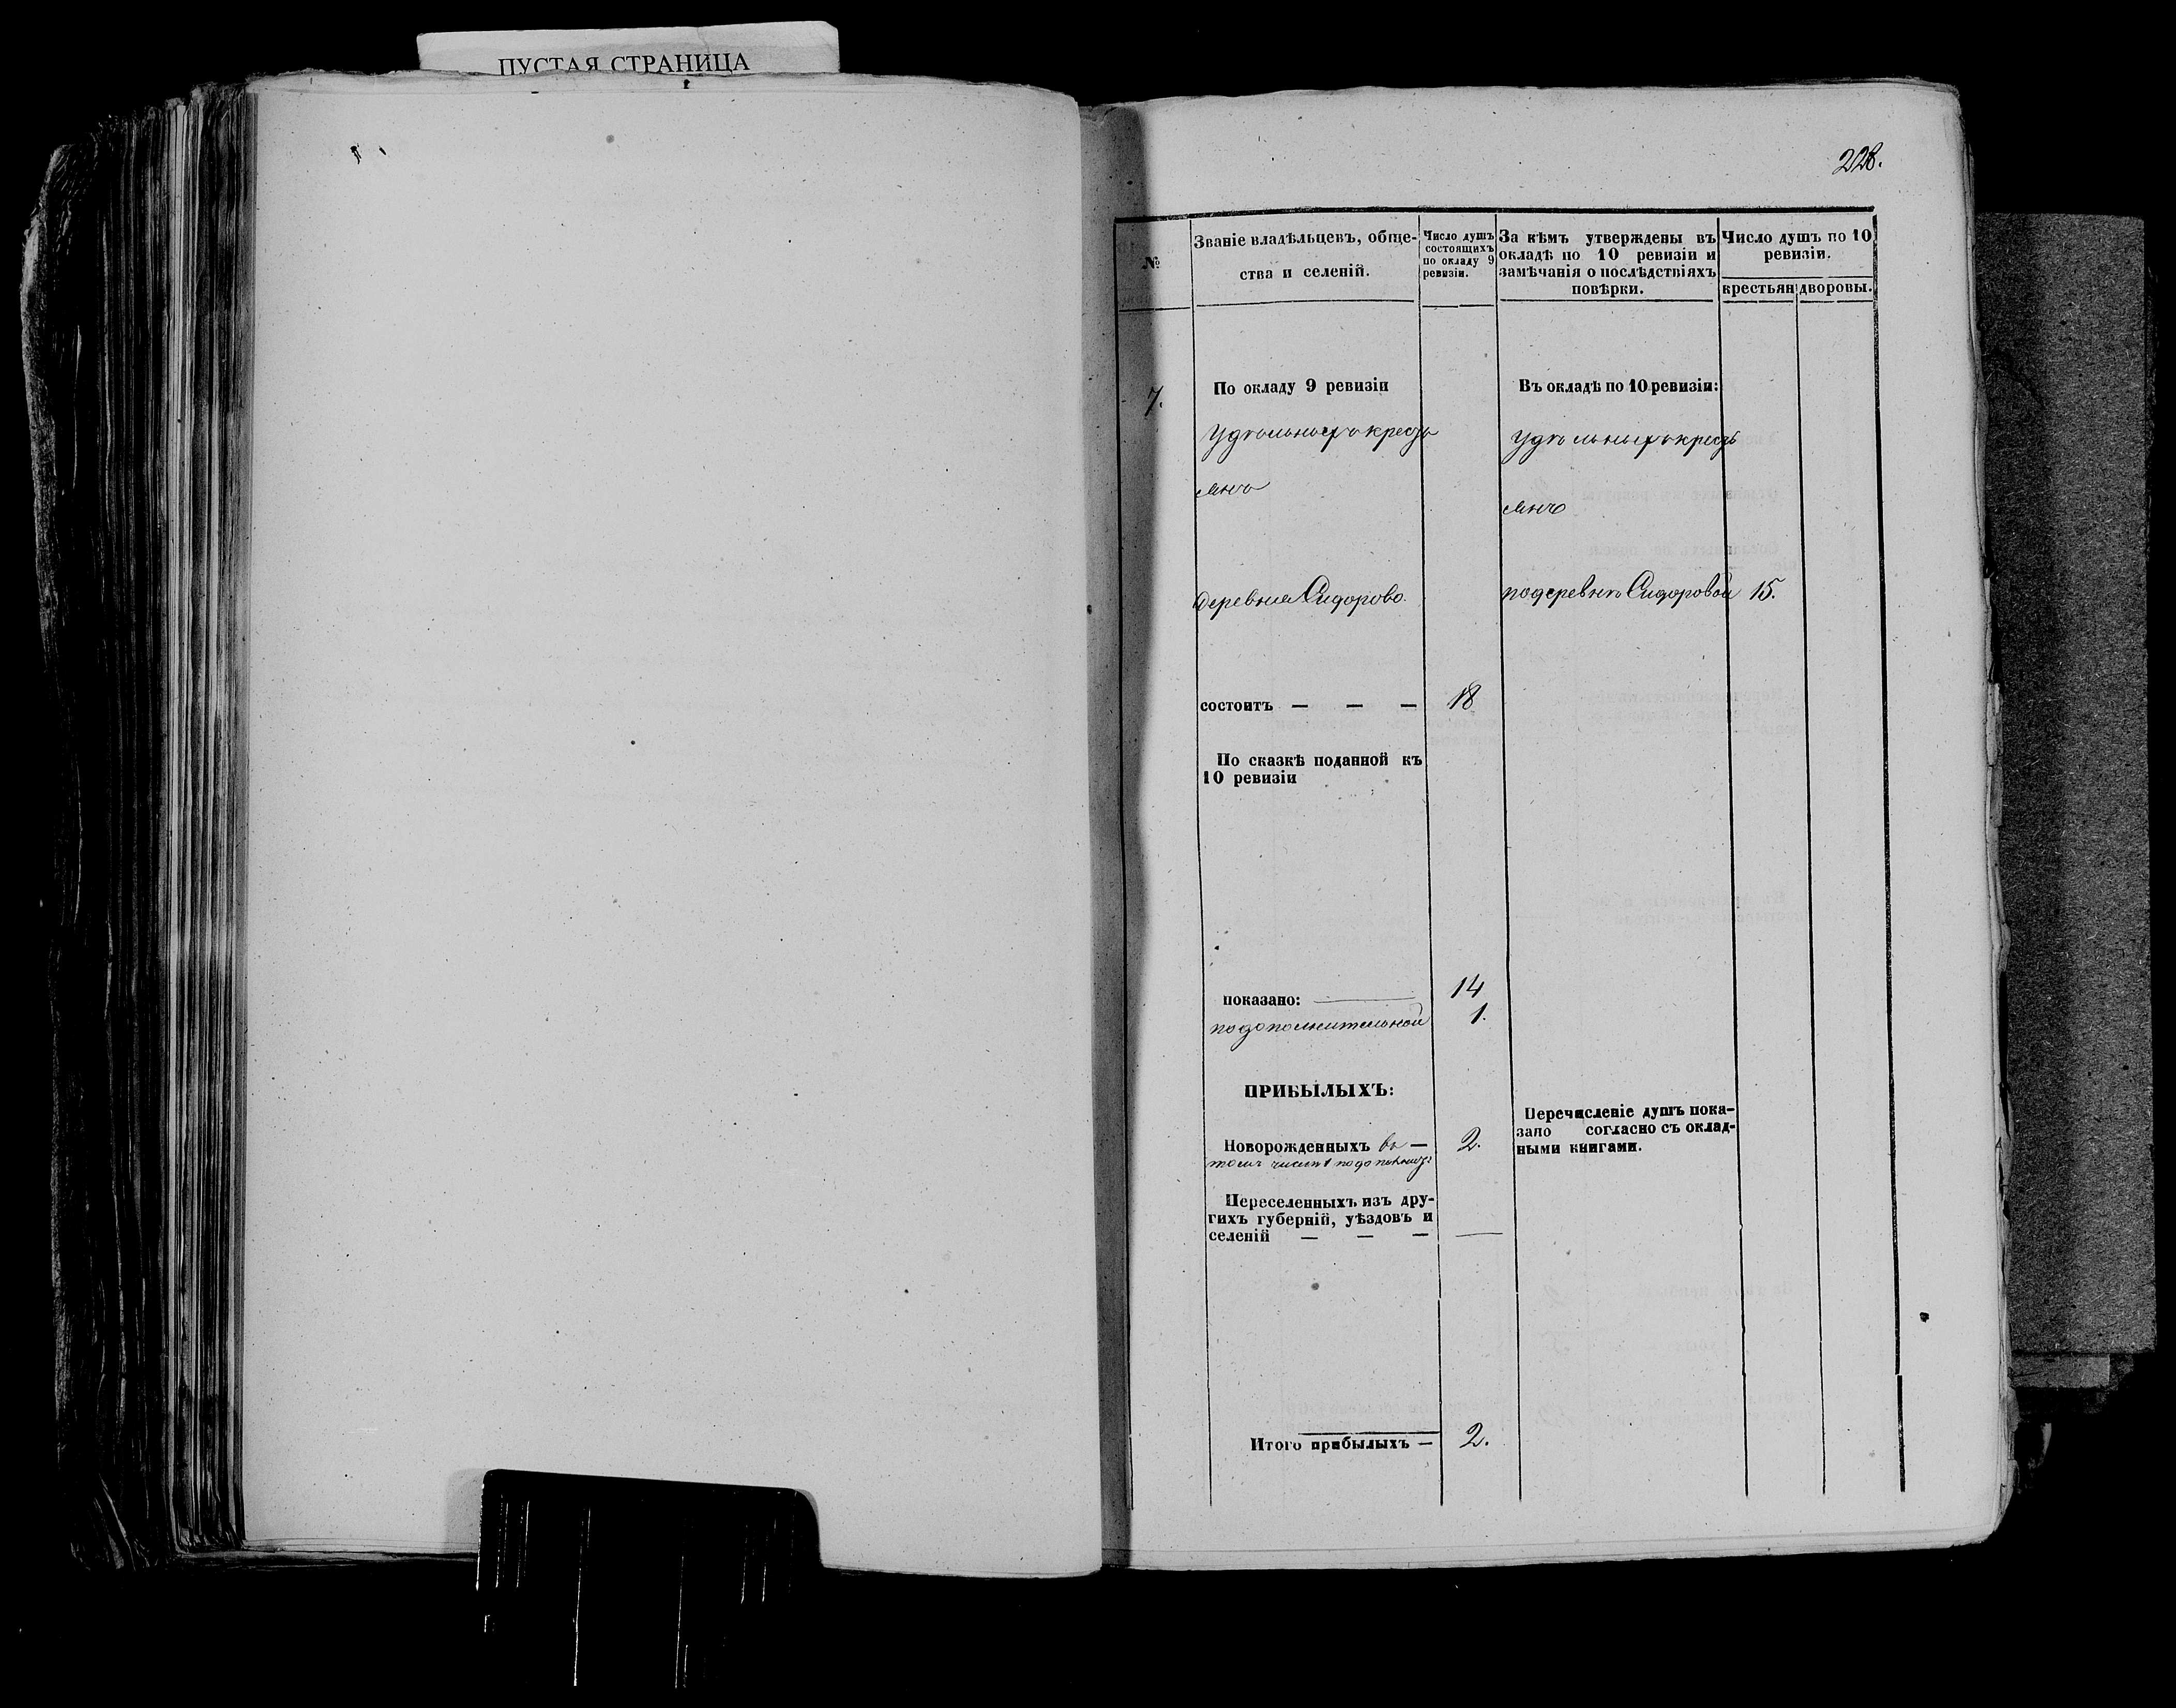 ПУСТАЯ СТРАНИЦА
228.
№
Званіе владѣльцевъ, обще-
ства и селеній.
Число душъ
состоящихъ
по окладу 9
ревизіи.
За кѣмъ утверждены въ
окладѣ по 10 ревизіи и
замѣчанія о послѣдствіяхъ
повѣрки.
Число душъ по 10
ревизіи.
крестьян
дворовы.
7.
По окладу 9 ревизіи
Удѣльныхъ кресть
янъ
деревня Сидорово.
состоитъ — — —
18
По сказкѣ поданной къ
10 ревизіи
показано:
14
по дополнительной
1.
ПРИБЫЛЫХЪ:
Новорожденныхъ въ —
2.
томъ числѣ 1 по
Переселенныхъ изъ дру-
гихъ губерній, уѣздовъ и
селеній — — —
—
Итого прибылыхъ —
2.
Въ окладѣ по 10 ревизіи:
Удѣльныхъ кресть
янъ
по деревнѣ Сидоровой
15.
Перечисленіе душъ пока-
зано согласно съ оклад-
ными книгами.